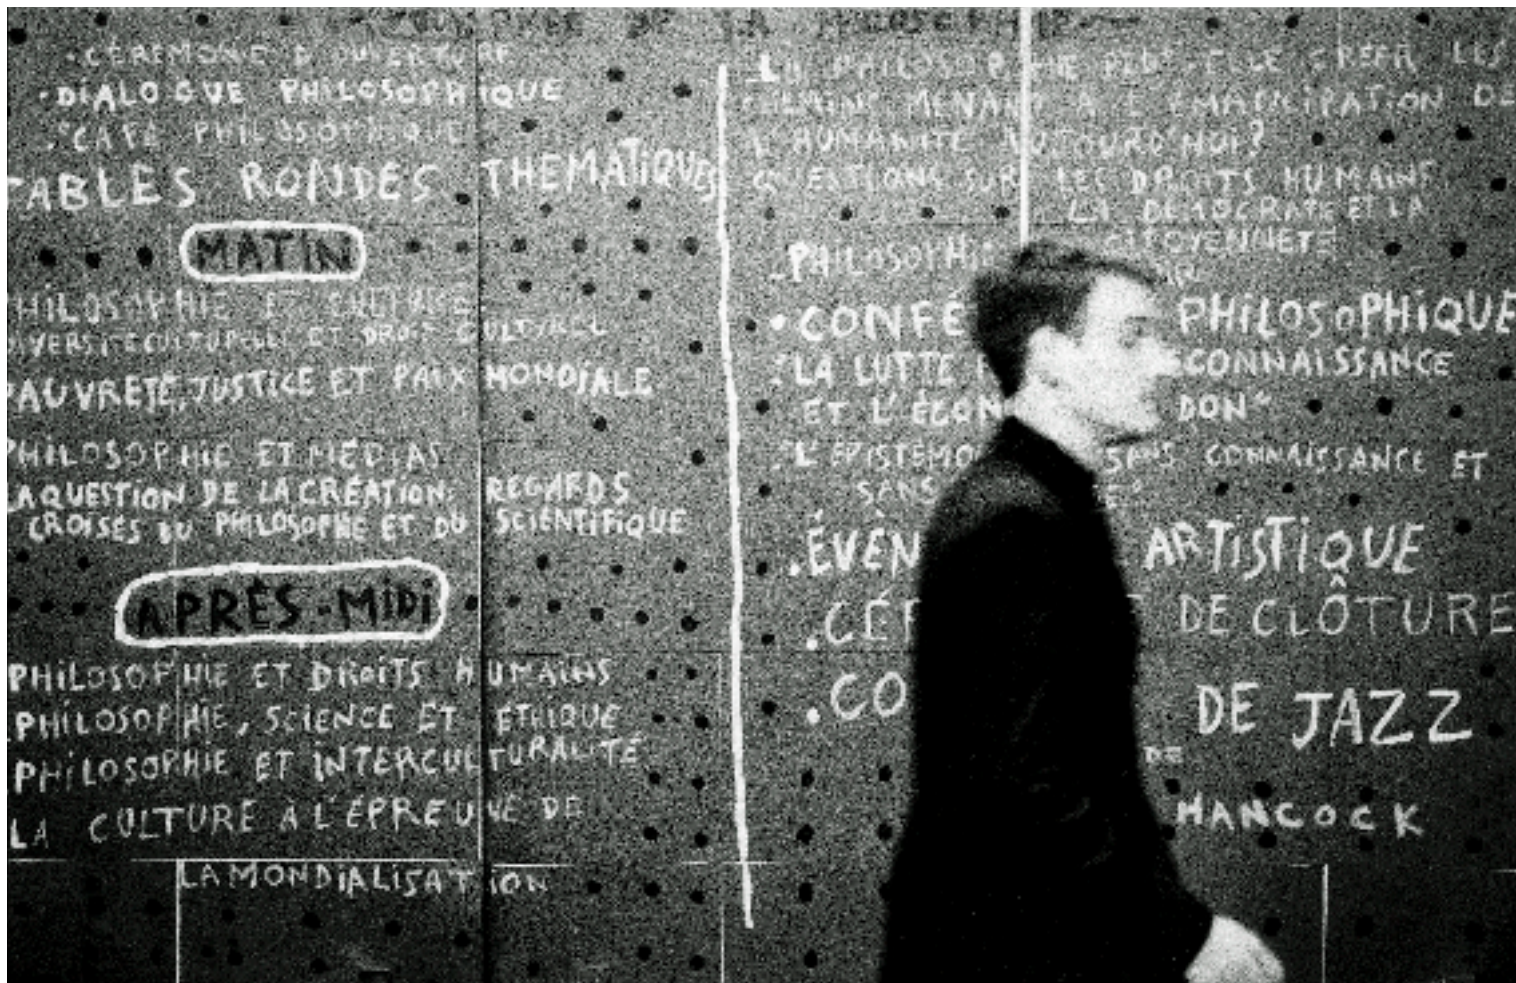 CÉRÉMONIE D'OUVERTURE
·DIALOGUE PHILOSOPHIQUE
·CAFÉ PHILOSOPHIQUE
TABLES RONDES THEMATIQUES
MATIN
PHILOSOPHIE ET CULTURE
DIVERSITÉ CULTURELLE ET DROIT CULTUREL
PAUVRETÉ, JUSTICE ET PAIX MONDIALE
PHILOSOPHIE ET MÉDIAS
LA QUESTION DE LA CRÉATION: REGARDS
CROISÉS DU PHILOSOPHE ET DU SCIENTIFIQUE
APRÈS-MIDI
PHILOSOPHIE ET DROITS HUMAINS
PHILOSOPHIE, SCIENCE ET ETHIQUE
PHILOSOPHIE ET INTERCULTURALITÉ
LA CULTURE À L'ÉPREUVE DE
LA MONDIALISATION
LA PHILOSOPHIE PEUT-ELLE CRÉER LES
CHEMINS MENANT A L'EMANCIPATION DE
L'HUMANITÉ AUJOURD'HUI?
QUESTIONS SUR LES DROITS HUMAINS,
LA DEMOCRATIE ET LA
CITOYENNETÉ
PHILOSOPHIE
·CONFÉ PHILOSOPHIQUE
LA LUTTE CONNAISSANCE
ET L'ÉCON DON"
L'EPISTEMO SANS CONNAISSANCE ET
SANS
·ÉVÈN ARTISTIQUE
·CÉR DE CLÔTURE
·CO DE JAZZ
DE
HANCOCK